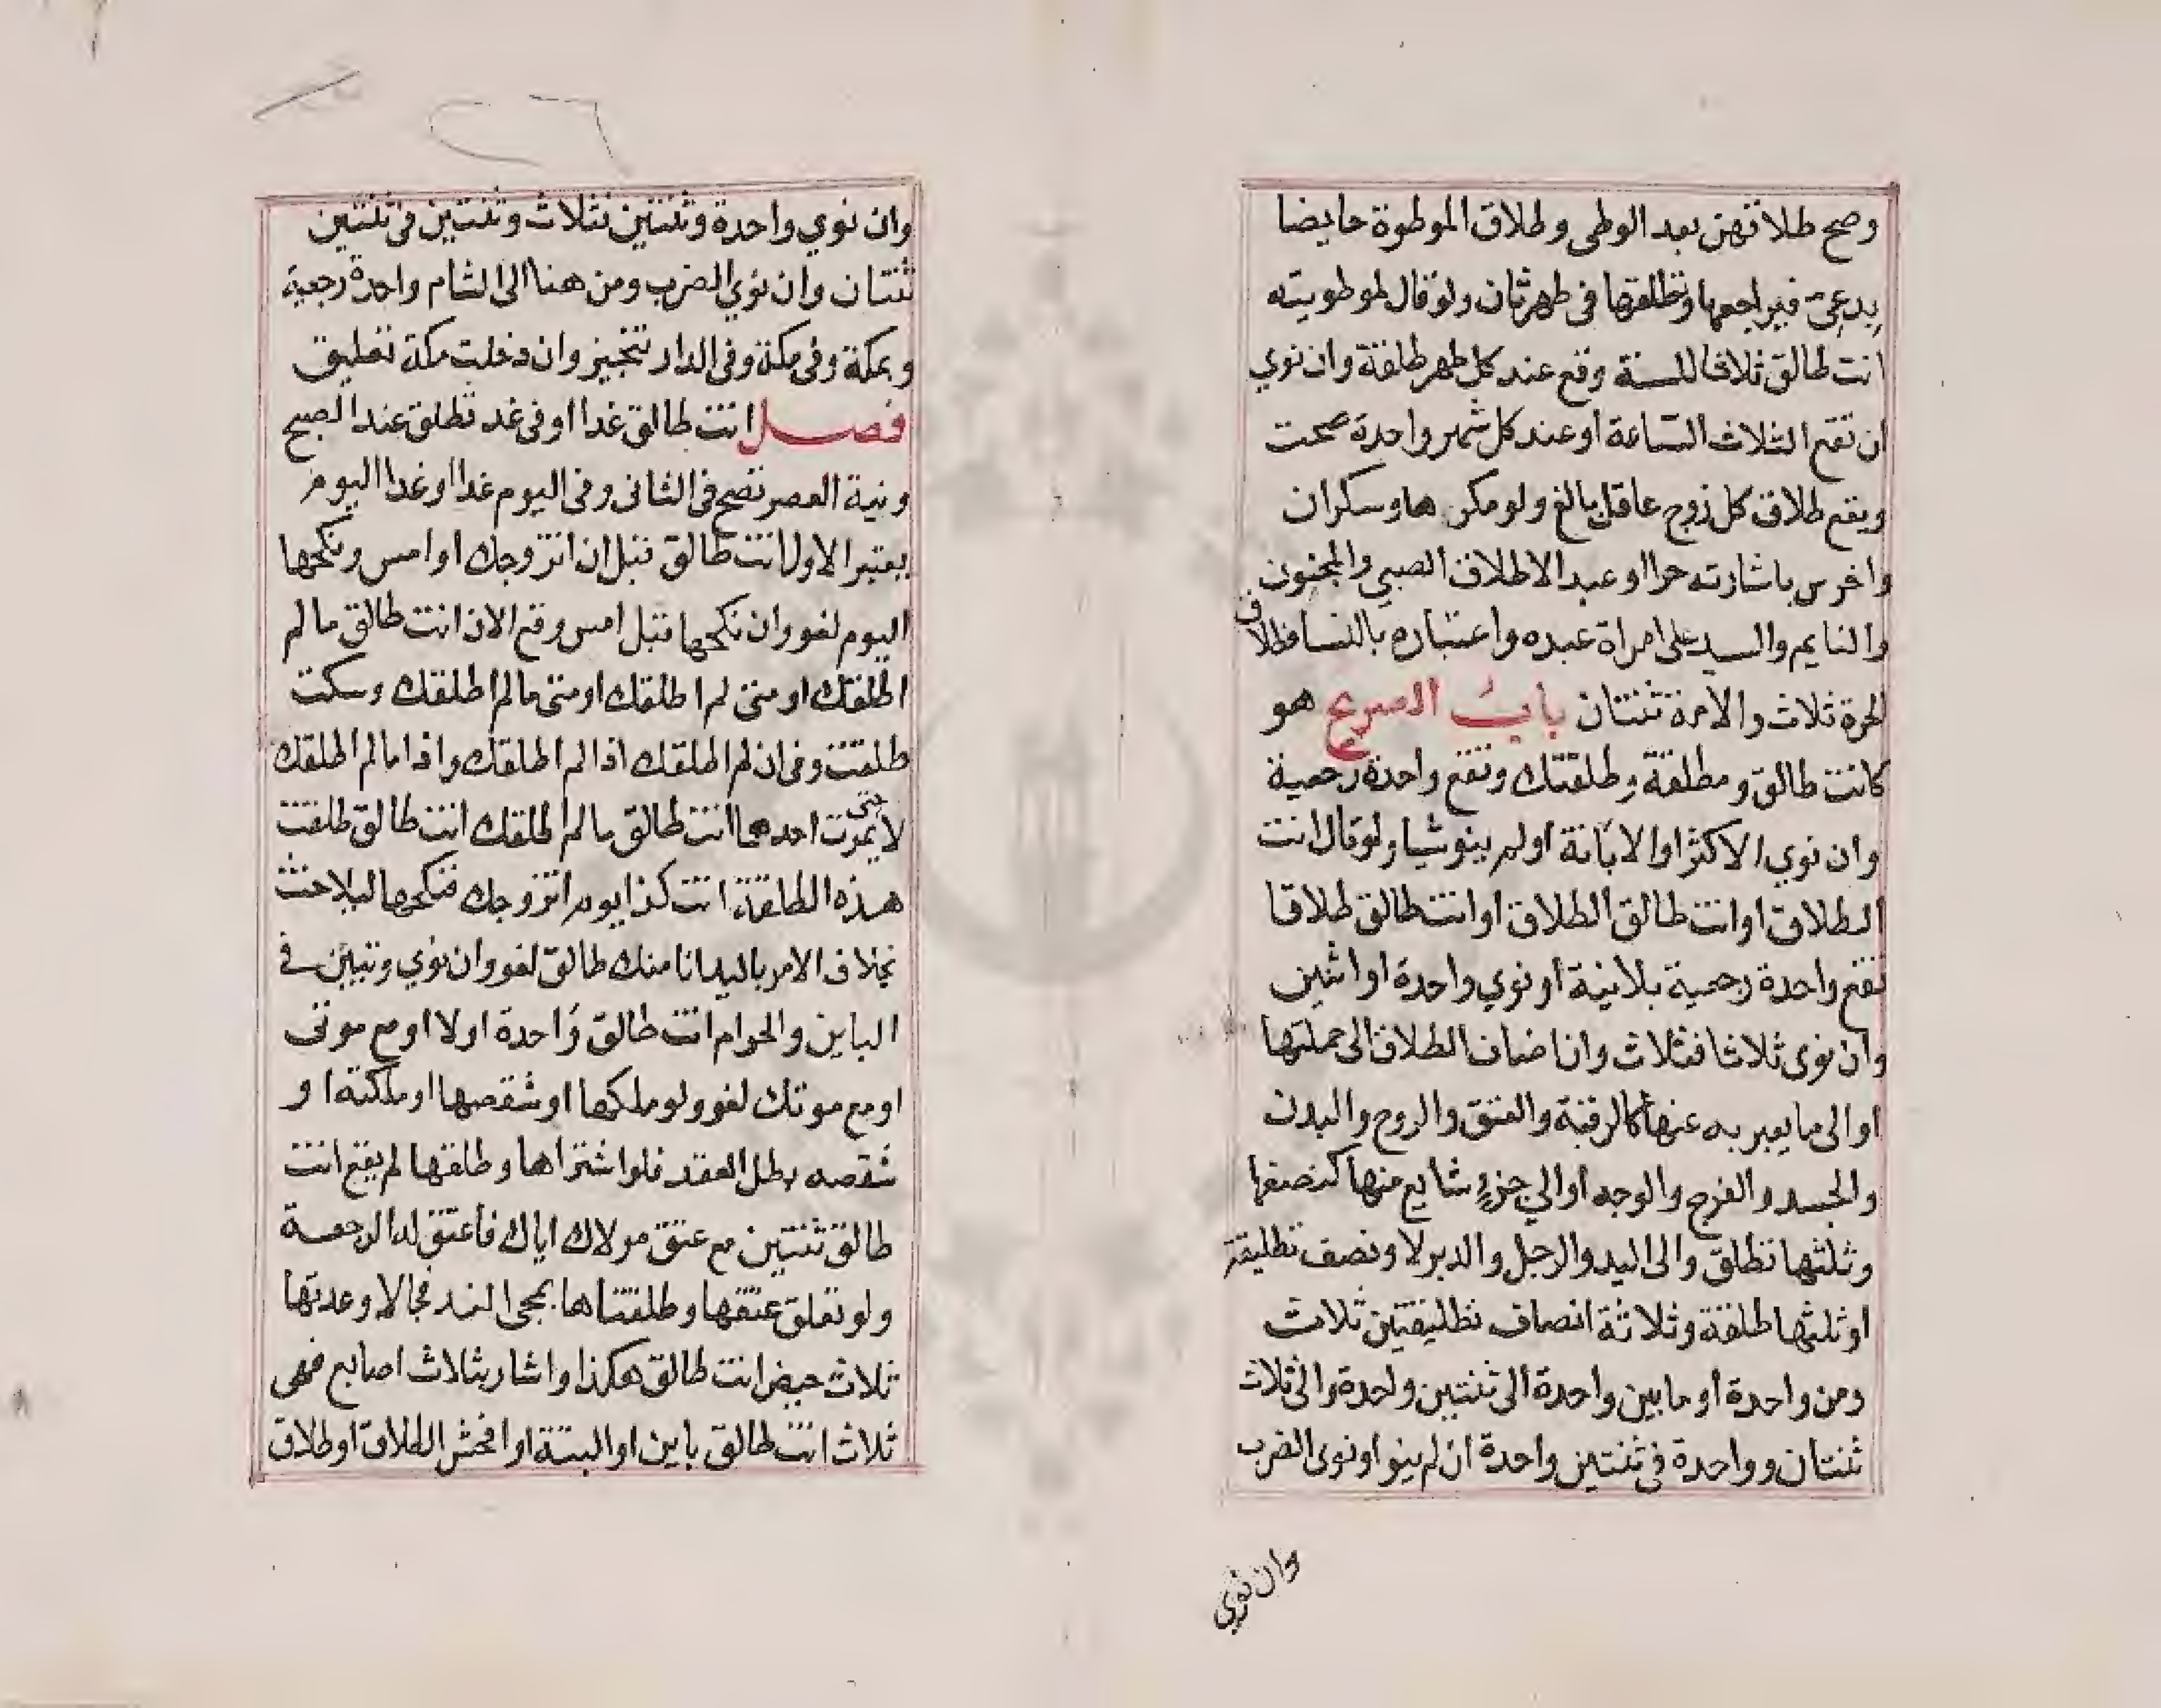 وصح طلاقهن بعد الوطى وطلاق الموطوة حايضا
بدعى فيراجعها وتطلقها فى طهر ثان ولو قال لموطويته
انت طالق ثلاثا للسنة وقع عند كل طهر طلقة وان نوي
ان تقع الثلاث الساعة او عند كل شهر واحدة صحت
ويقع طلاق كل زوج عاقل بالغ ولو مكرها وسكران
واخرس باشارته حرا او عبدا لا طلاق الصبي والمجنون
والنايم والسيد على امراة عبده واعتباره بالنسا فطلاق
الحرة ثلاث والامة ثنتان باب الصريح هو
كانت طالق ومطلقة وطلقتك وتقع واحدة رجعية
وان نوي الاكثر او الابانة او لم ينو شيا ولو قال انت
الطلاق او انت طالق الطلاق او انت طالق طلاقا
تقع واحدة رجعية بلا نية او نوي واحدة او اثنين
وان نوى ثلاثا فثلاث وان اضاف الطلاق الى جملتها
او الى ما يعبر به عنها كالرقبة والعنق والروح والبدن
والجسد والفرج والوجه او الي جزء شايع منها كنصفها
وثلثها تطلق والى اليد والرجل والدبر لا ونصف تطليقة
او ثلثها طلقة وثلاثة انصاف تطليقتين ثلاث
ومن واحدة او ما بين واحدة الى ثنتين واحدة والى ثلاث
ثنتان وواحدة فى ثنتين واحدة ان لم ينو او نوى الضرب
وان نوي
وان نوي واحدة وثنتين فثلاث وثنتين فى ثنتين
ثنتان وان نوي الضرب ومن هنا الى الشام واحدة رجعية
وبمكة وفى مكة وفى الدار تنجيز وان دخلت مكة تعليق
فصل انت طالق غدا او فى غد تطلق عند الصبح
ونية العصر تصح فى الثانى وفى اليوم غدا او غدا اليوم
يعتبر الاول انت طالق قبل ان اتزوجك او امس ونكحها
اليوم لغو وان نكحها قبل امس وقع الان انت طالق ما لم
اطلقك او متى لم اطلقك او متى ما لم اطلقك وسكت
طلقت وفى ان لم اطلقك اذا لم اطلقك واذا ما لم اطلقك
لا حتى يموت احدهما انت طالق ما لم اطلقك انت طالق طلقت
هذه الطلقة انت كذا يوم اتزوجك فنكحها ليلا حنث
بخلاف الامر باليد انا منك طالق لغو وان نوي وتبين فى
الباين والحرام انت طالق واحدة او لا او مع موتى
او مع موتك لغو ولو ملكها او شقصها او ملكته او
شقصه بطل العقد فلو اشتراها وطلقها لم يقع انت
طالق ثنتين مع عتق مولاك اياك فاعتق له الرجعة
ولو تعلق عتقها وطلقتاها بمجى الغد فجا لا وعدتها
ثلاث حيض انت طالق هكذا واشار بثلاث اصابع فهى
ثلاث انت طالق باين او البتة او افحش الطلاق او طلاق